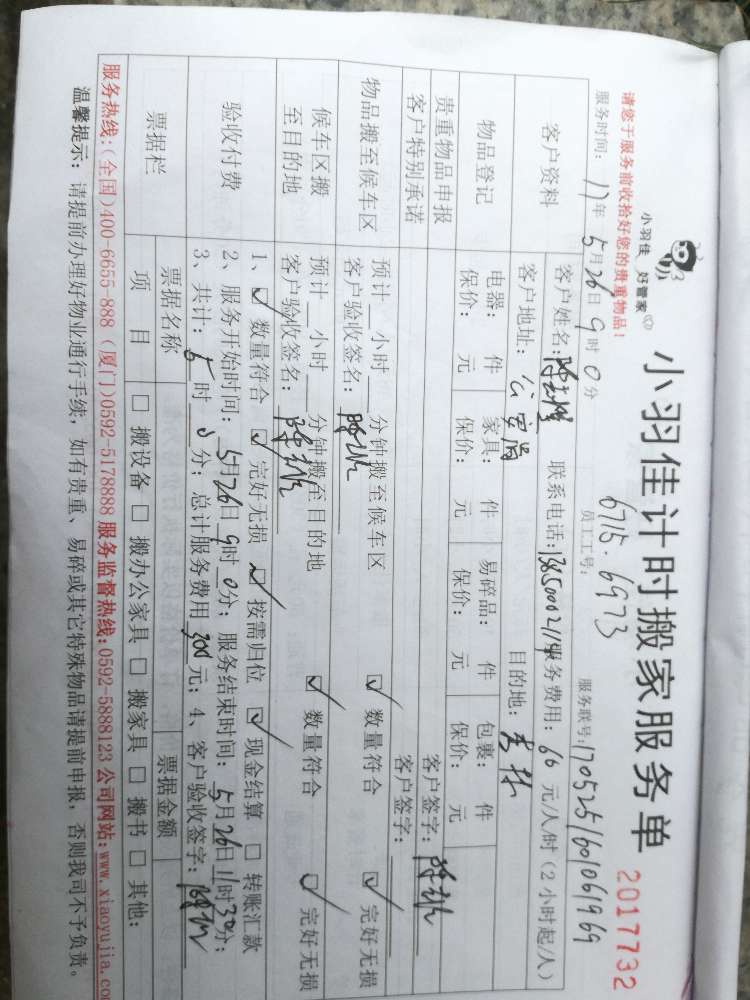 小羽佳 好管家
小羽佳计时搬家服务单
2017732
请您于服务前收拾好您的贵重物品！
员工工号：6715·6973
服务联号：170525160106​1969
服务时间：17年5月26日9时0分
客户资料
客户姓名： 联系电话：13850002114 服务费用：60元/人/时（2小时起/人）
客户地址：公安局 目的地：杏林
物品登记
电器： 件 家具： 件 易碎品： 件 包裹： 件
保价： 元 保价： 元 保价： 元 保价： 元
贵重物品申报 客户签字：
客户特别承诺 客户签字：
物品搬至候车区
预计 小时 分钟搬至候车区 ☑ 数量符合 ☑ 完好无损
客户验收签名：
候车区搬至目的地
预计 小时 分钟搬至目的地 ☑ 数量符合 ☑ 完好无损
客户验收签名：
验收付费
1、☑ 数量符合 ☑ 完好无损 ☑ 按需归位 ☑ 现金结算 □ 转账汇款
2、服务开始时间：5月26日9时0分；服务结束时间：5月26日11时30分；
3、共计：5时0分；总计服务费用300元；4、客户验收签字：
票据栏
票据名称 票据金额
项目 □ 搬设备 □ 搬办公家具 □ 搬家具 □ 搬书 □ 其他：
服务热线：(全国)400-6655-888（厦门)0592-5178888 服务监督热线：0592-5888123 公司网站：www.xiaoyujia.co
温馨提示：请提前办理好物业通行手续，如有贵重、易碎或其它特殊物品请提前申报，否则我司不予负责。